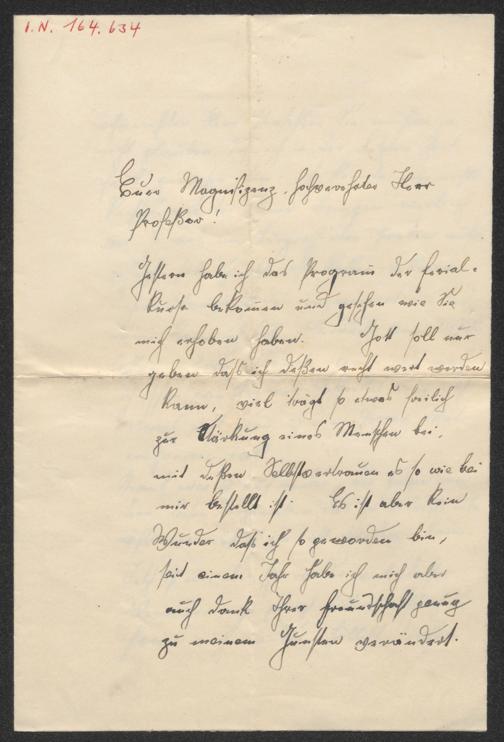 I.N. 164.634
Euer Magnifizenz, hochverehrter Herr
Professor!
Gestern habe ich das Programm der Ferial-
kurse bekommen und gesehen wie Sie
mich erhoben haben. Gott soll nur
geben dass ich dessen recht wert werden
kann, viel trägt so etwas freilich
zur Stärkung eines Menschen bei,
mit dessen Selbstvertrauen es so wie bei
mir bestellt ist. Es ist aber kein
Wunder dass ich so geworden bin,
seit einem Jahr habe ich mich aber
auch dank Ihrer Freundschaft genug
zu meinem Gunsten verändert.